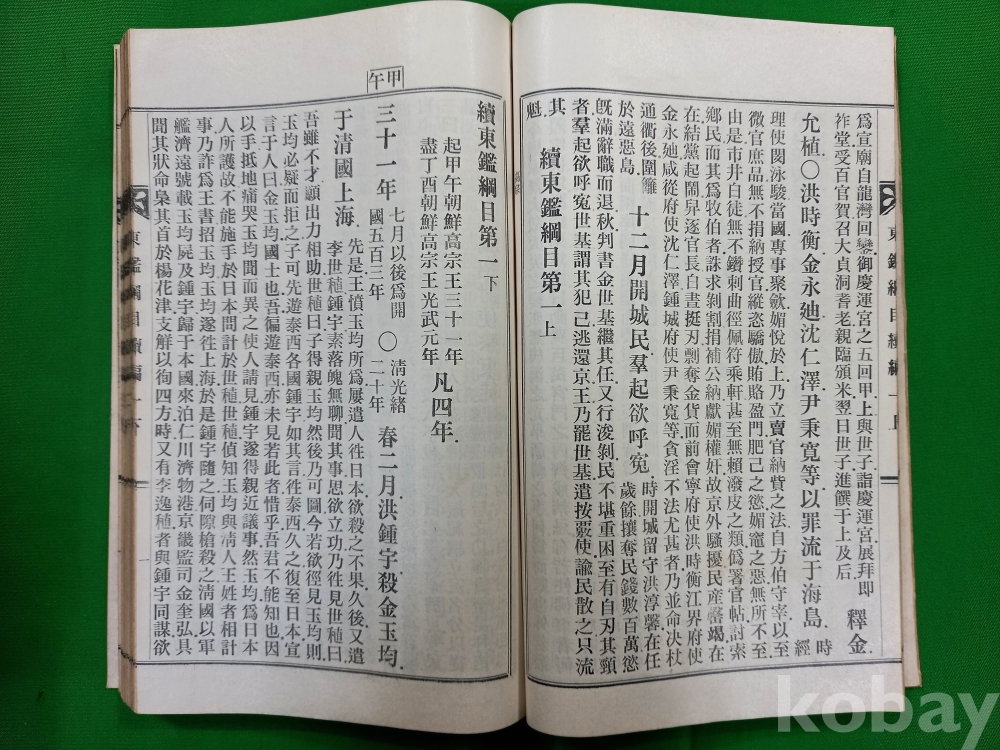 東鑑綱目續編 一上
爲宣廟自龍灣回鑾御慶運宮之五回甲上與世子詣慶運宮展拜卽
祚堂受百官賀召大貞洞耆老親臨頒米翌日世子進饌于上及后 釋金
允植○洪時衡金永廸沈仁澤尹秉寬等以罪流于海島 時經
理使閔泳駿當國專事聚歛媚悅於上乃立賣官納貲之法自方伯守宰以至
微官庶品無不捐納授官縱恣驕傲賄賂盈門肥己之慾媚竈之惡無所不至
由是市井白徒無不鑽刺曲徑佩符乘軒甚至無賴潑皮之類僞署官帖討索
鄉民而其爲牧伯者誅求剝割捐補公納獻媚權奸故京外騷擾民產罄竭在
在結黨起鬧舁逐官長白晝挺刃剽奪金貨而前會寧府使洪時衡江界府使
金永廸咸從府使沈仁澤鍾城府使尹秉寬等貪淫不法尤甚者乃並命决杖
通衢後圍籬於遠惡島 十二月開城民羣起欲呼寃 時開城留守洪淳馨在任歲餘攘奪民錢數百萬慾
旣滿辭職而退秋判書金世基繼其任又行浚剝民不堪重困至有自刃其頸
者羣起欲呼寃世基謂其犯己逃還京王乃罷世基遣按覈使諭民散之只流
其魁
續東鑑綱目第一上
甲午
續東鑑綱目第一下
起甲午朝鮮高宗王三十一年
盡丁酉朝鮮高宗王光武元年 凡四年
三十一年 七月以後爲開國五百三年 ○ 淸光緒二十年 春二月洪鍾宇殺金玉均
于淸國上海 先是王憤玉均所爲屢遣人往日本欲殺之不果久後又遣
李世稙鍾宇素落魄無聊聞其事思欲立功乃往見世稙曰
吾雖不才願出力相助世稙曰子得親玉均然後乃可圖今若欲徑見玉均則
玉均必疑而拒之子可先遊泰西各國鍾宇如其言往泰西久之復至日本宣
言于人曰金玉均國士也吾徧遊泰西亦未見若此者惜乎吾君不能知也因
以手抵地痛哭玉均聞而異之使人請見鍾宇遂得親近議事然玉均爲日本
人所護故不能施手於日本間計於世稙世稙偵知玉均與淸人王姓者相計
事乃詐爲王書招玉均玉均遂往上海於是鍾宇隨之伺隙槍殺之淸國以軍
艦濟遠號載玉均屍及鍾宇歸于本國來泊仁川濟物港京畿監司金奎弘具
聞其狀命梟其首於楊花津支解以徇四方時又有李逸稙者與鍾宇同謀欲
東鑑綱目續編 一下
一
kobay